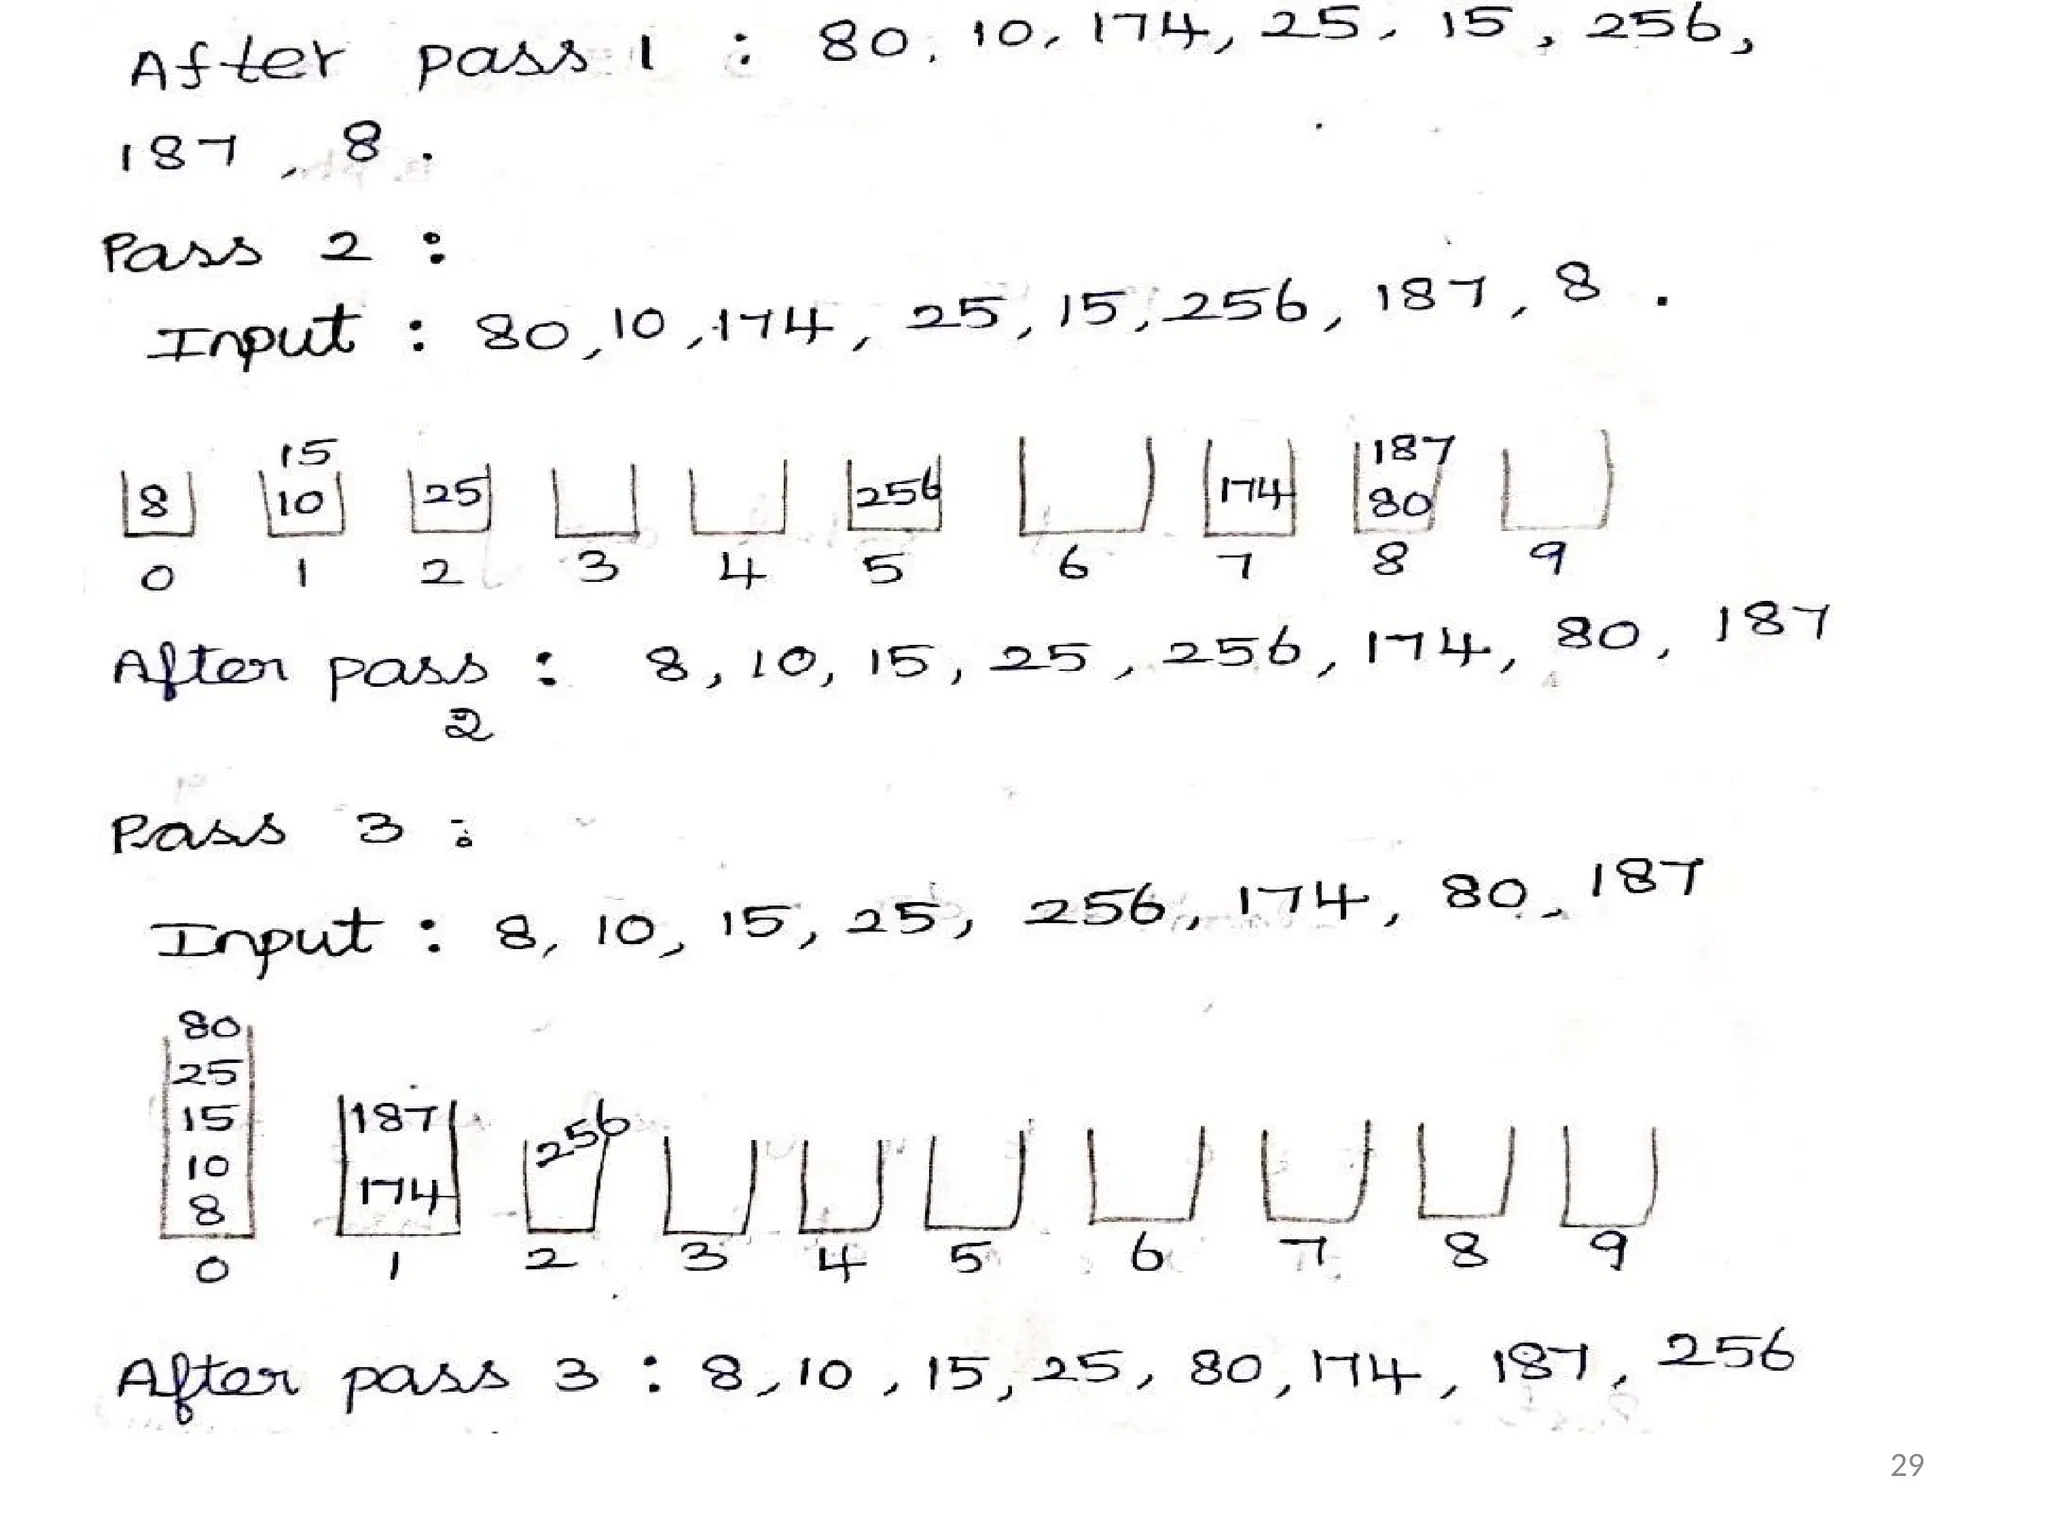 After pass 1 : 80, 10, 174, 25, 15, 256,
187, 8.
Pass 2 :
Input : 80, 10, 174, 25, 15, 256, 187, 8.
15 187
8 10 25 256 174 80
0 1 2 3 4 5 6 7 8 9
After pass : 8, 10, 15, 25, 256, 174, 80, 187
2
Pass 3 :
Input : 8, 10, 15, 25, 256, 174, 80, 187
80
25
15 187 256
10
8 174
0 1 2 3 4 5 6 7 8 9
After pass 3 : 8, 10, 15, 25, 80, 174, 187, 256
29